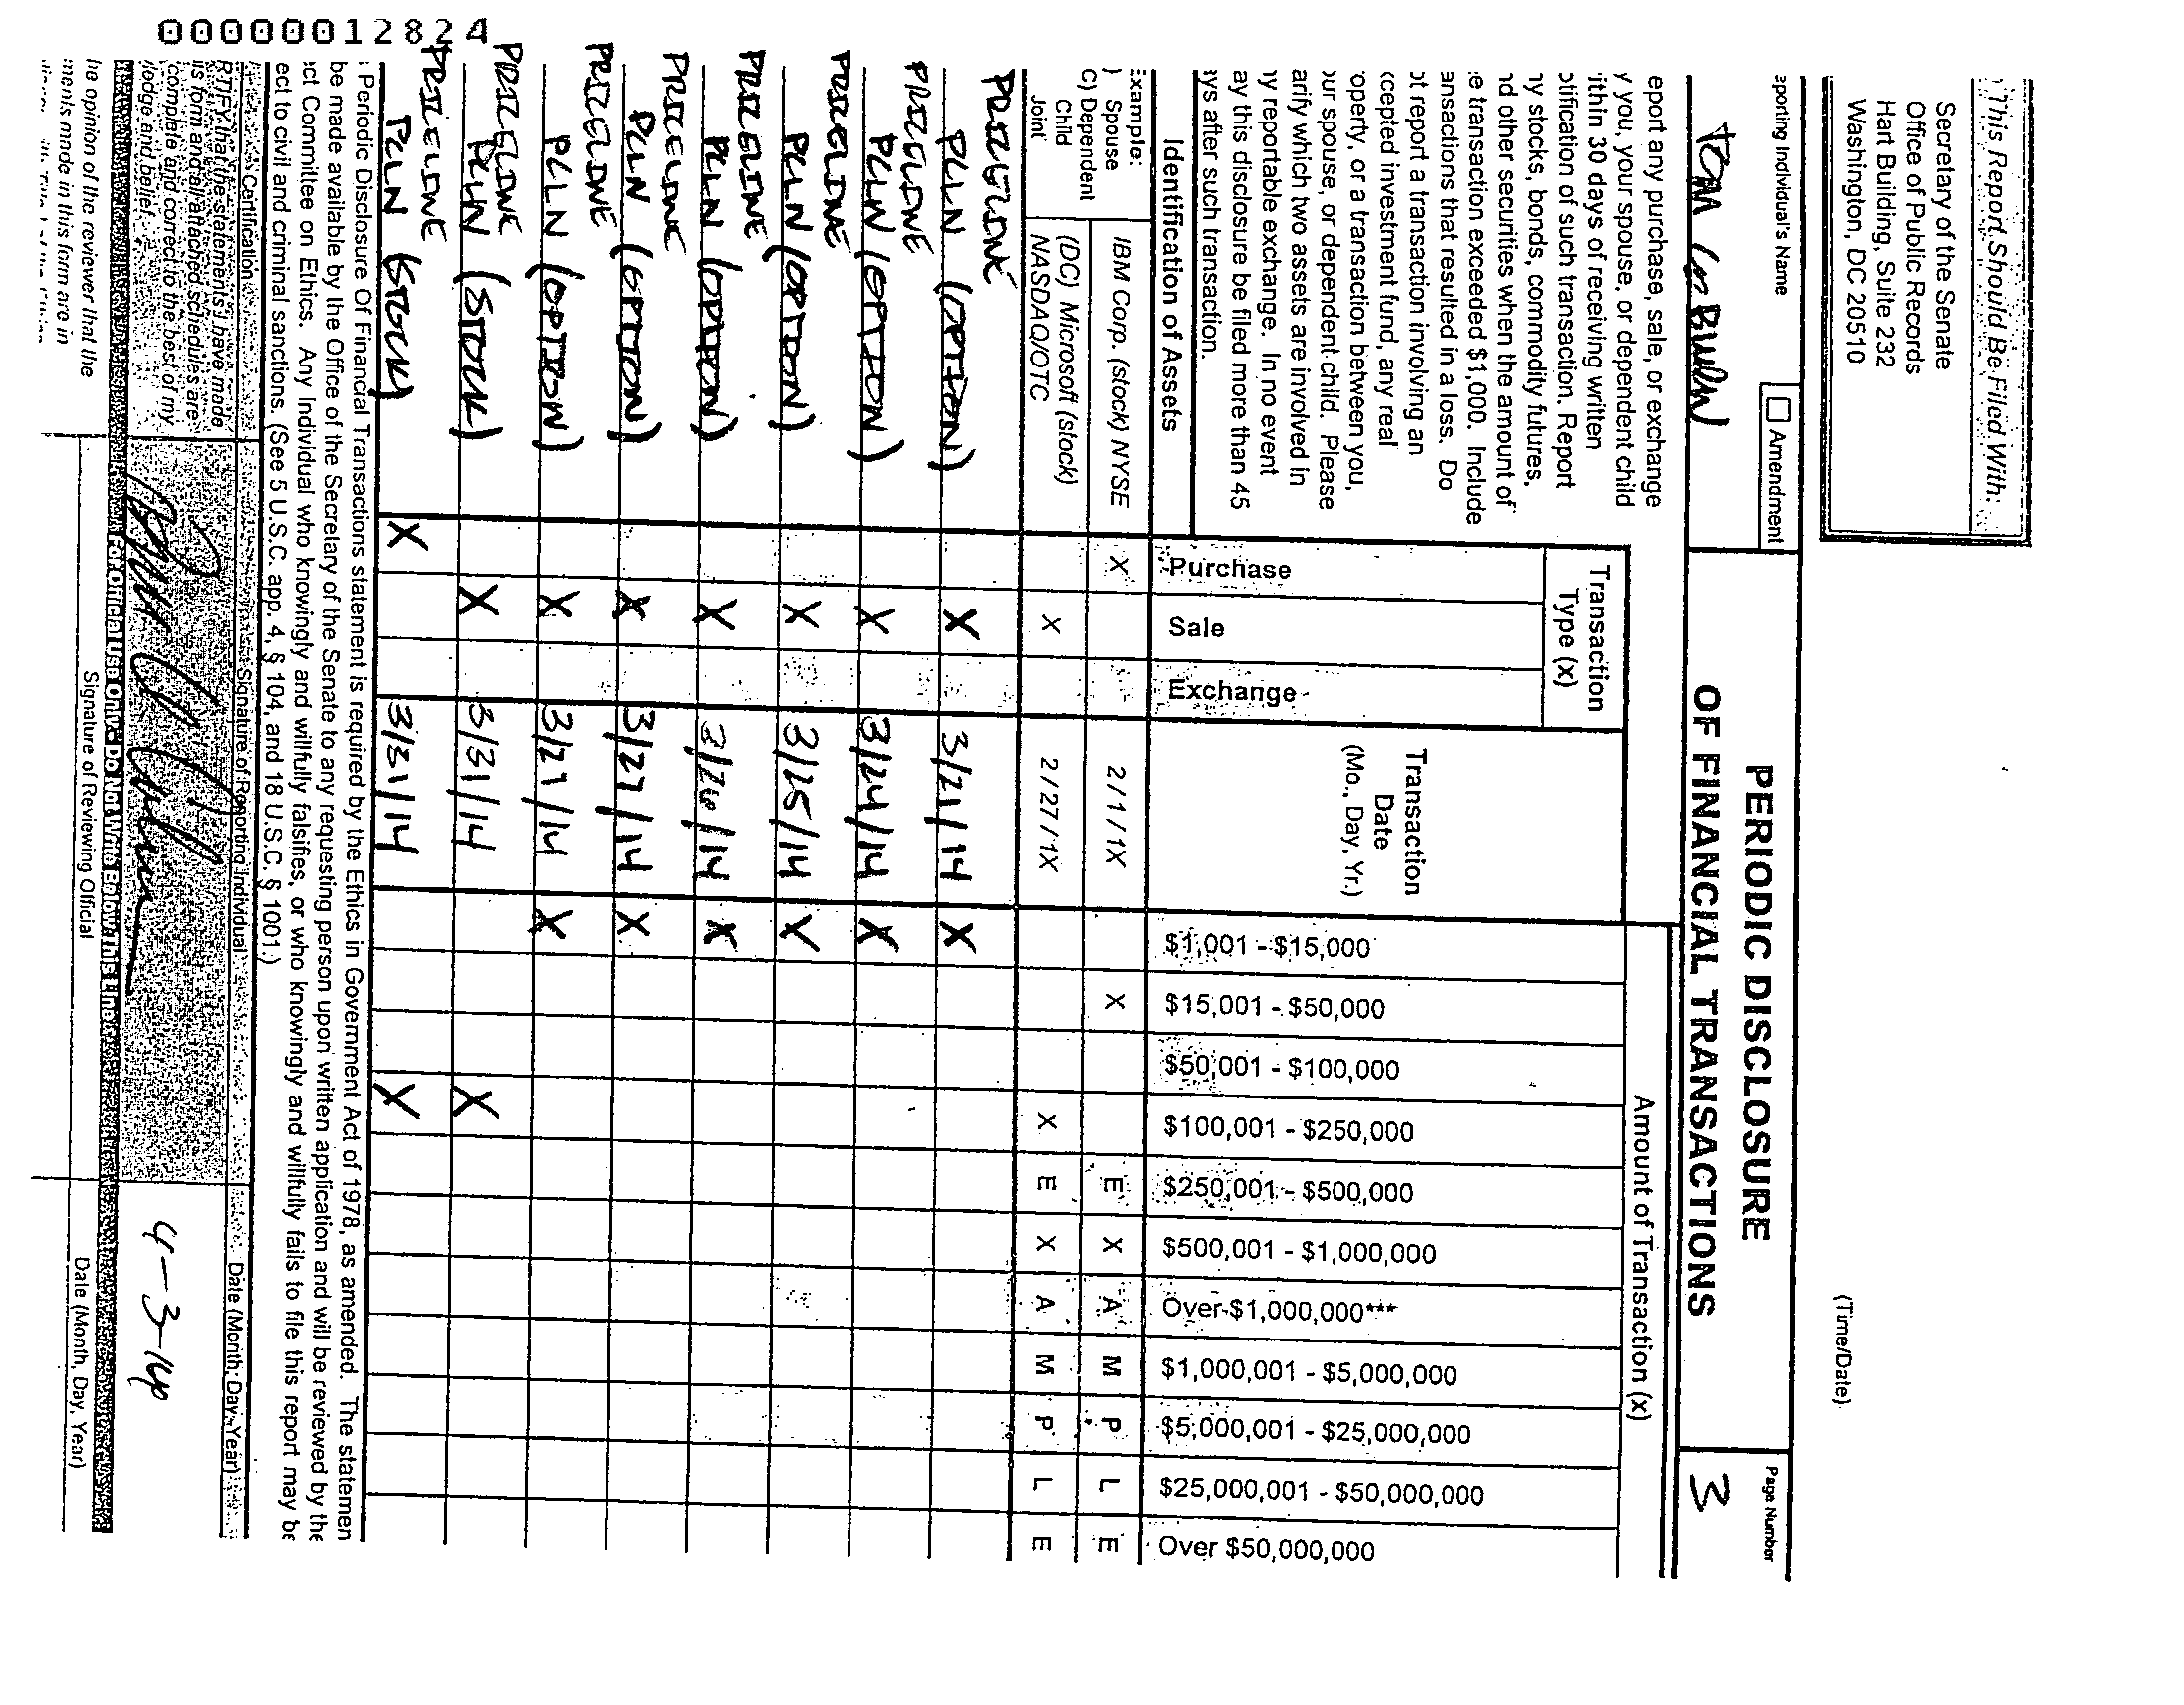 This Report Should Be Filed With:
Secretary of the Senate
Office of Public Records
Hart Building, Suite 232
Washington, DC 20510
(Time/Date)
eporting Individual's Name
Amendment
PERIODIC DISCLOSURE
OF FINANCIAL TRANSACTIONS
Page Number
3
Tom
eport any purchase, sale, or exchange
y you, your spouse, or dependent child
ithin 30 days of receiving written
otification of such transaction. Report
ny stocks, bonds, commodity futures,
nd other securities when the amount of
e transaction exceeded $1,000. Include
ansactions that resulted in a loss. Do
ot report a transaction involving an
xcepted investment fund, any real
operty, or a transaction between you,
our spouse, or dependent child. Please
arify which two assets are involved in
ny reportable exchange. In no event
ay this disclosure be filed more than 45
ays after such transaction.
Identification of Assets
Transaction
Type (x)
Purchase
Sale
Exchange
Transaction
Date
(Mo., Day, Yr.)
Amount of Transaction (x)
$1,001 - $15,000
$15,001 - $50,000
$50,001 - $100,000
$100,001 - $250,000
$250,001 - $500,000
$500,001 - $1,000,000
Over $1,000,000***
$1,000,001 - $5,000,000
$5,000,001 - $25,000,000
$25,000,001 - $50,000,000
Over $50,000,000
Example:
) Spouse
C) Dependent
Child
Joint
IBM Corp. (stock) NYSE X 2/1/1X X E X A M P L E
(DC) Microsoft (stock)
NASDAQ/OTC X 2/27/1X X E X A M P L E
PRICELINE
PCLN (OPTION) X 3/21/14 X
PRICELINE
PCLN (OPTION) X 3/24/14 X
PRICELINE
PCLN (OPTION) X 3/25/14 X
PRICELINE
PCLN (OPTION) X 3/26/14 X
PRICELINE
PCLN (OPTION) X 3/27/14 X
PRICELINE
PCLN (OPTION) X 3/27/14 X
PRICELINE
PCLN (STOCK) X 3/31/14 X
PRICELINE
PCLN (STOCK) X 3/31/14 X
: Periodic Disclosure Of Financial Transactions statement is required by the Ethics in Government Act of 1978, as amended. The statemen
be made available by the Office of the Secretary of the Senate to any requesting person upon written application and will be reviewed by the
ct Committee on Ethics. Any Individual who knowingly and willfully falsifies, or who knowingly and willfully fails to file this report may be
ect to civil and criminal sanctions. (See 5 U.S.C. app. 4, § 104, and 18 U.S.C. § 1001.)
Certification
Signature of Reporting Individual
Date (Month, Day, Year)
RTIFY that the statements I have made
is form and all attached schedules are
complete and correct to the best of my
ledge and belief.
4-3-14
For Official Use Only - Do Not Write Below This Line
he opinion of the reviewer that the
ments made in this form are in
Signature of Reviewing Official
Date (Month, Day, Year)
00000012824